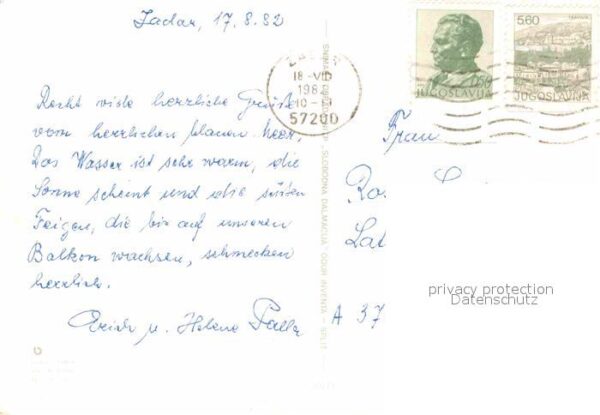 Zadar, 17.8.82
Recht viele herzliche Grüße
vom herrlichen blauen Meer,
Das Wasser ist sehr warm, die
Sonne scheint und die süßen
Feigen, die bis auf unseren
Balkon wachsen, schmecken
herrlich.
Erich u. Helene
JUGOSLAVIJA
5.60
JUGOSLAVIJA
18-VIII
57200
SLOBODNA DALMACIJA
SPLIT
Frau
Ro.
Lat
A 37
privacy protection
Datenschutz